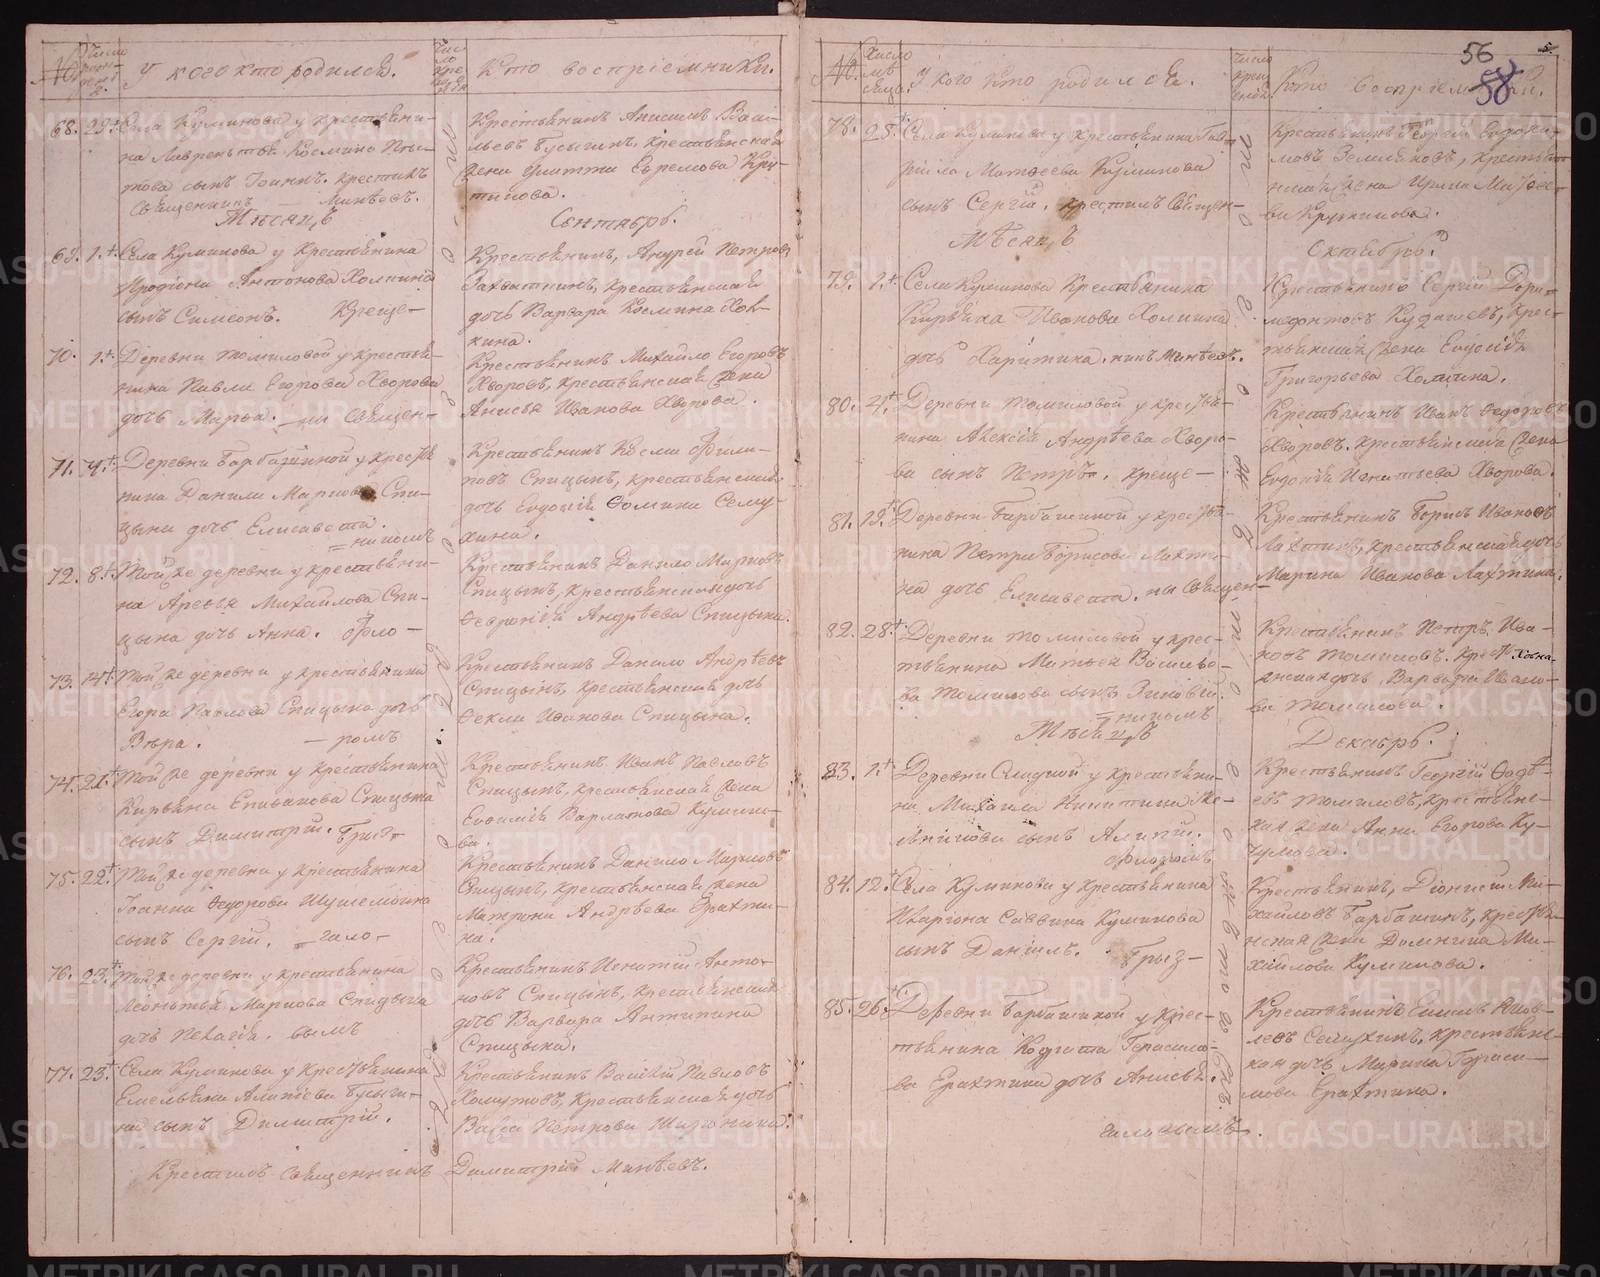 №
Число рожденія
У кого кто родился.
Число крещенія
Кто воспріемники.
68. 29. Села Куминова у крестьяни-
на Лаврентья Космина
това сынъ Іоаннъ. крестилъ
Священникъ — Минѣевъ.
Крестьянинъ Анисимъ Васи-
льевъ Бусыгинъ, крестьянская
жена Улитта Ефремова Кру-
тикова.
Мѣсяцъ Сентябрь.
69. 1. Села Куминова у крестьянина
Иродіона Антонова Холкина
сынъ Симеонъ. Креще-
Крестьянинъ, Андрей Петровъ
крестьянская
дочь Варвара Космина Хол-
кина.
70. 1. Деревни Томиловой у крестья-
нина Павла Егорова Хворова
дочь Марѳа. — ны Священ-
Крестьянинъ Михайло Егоровъ
Хворовъ, крестьянская жена
Анисья Иванова Хворова.
71. Деревни Барбашиной у крестья
нина Данила Маркова Спи-
цына дочь Елисавета.
= никомъ
Крестьянинъ Косма Фили-
повъ Спицынъ, крестьянская
дочь Евдокія Ѳомина Сему-
хина.
72. 8. Той же деревни у крестьяни-
на Арефья Михайлова Спи-
цына дочь Анна. Фло-
Крестьянинъ Данило Марковъ
Спицынъ, крестьянская дочь
Ѳевронія Андрѣева Спицына.
73. 14. Той же деревни у крестьянина
Егора Павлова Спицына дочь
Вѣра. — ромъ
Крестьянинъ Данило Андрѣевъ
Спицынъ, крестьянская дочь
Ѳекла Иванова Спицына.
74. 21. Той же деревни у крестьянина
Кирьяна Епифанова Спицына
сынъ Димитрій. Грыз-
Крестьянинъ Иванъ Павловъ
Спицынъ, крестьянская жена
Евфимія Варламова Кумино-
ва.
75. 22. Той же деревни у крестьянина
Іоанна Ѳедорова
сынъ Сергій. — гало-
Крестьянинъ Данило Марковъ
Спицынъ, крестьянская жена
Матрона Андрѣева Ерахти-
на.
76. 23. Той же деревни у крестьянина
Леонтья Маркова Спицына
дочь Пелагія. вымъ
Крестьянинъ Игнатій Анто-
новъ Спицынъ, крестьянская
дочь Варвара Антипина
Спицына.
77. 23. Села Куминова у крестьянина
Емельяна Алипіева Бусыги-
на сынъ Димитрій.
Крестьянинъ Василій Павловъ
Хомутовъ, крестьянская дочь
Васса Петрова
Крестилъ Священникъ Димитрій Минѣевъ.
56
58
№
Число мѣсяца.
У кого кто родился.
Число крещенія
Кто воспріемники.
78. 25. Села Куминова у крестьянина Гав-
рійла Матѳеева Куминова
сынъ Сергій. крестилъ Священ-
Крестьянинъ Георгій Евдоки-
мовъ Земляновъ, крестьян
ская жена Ирина Матѳее-
ва Кружинова.
Мѣсяцъ Октябрь.
79. 1. Села Куминова Крестьянина
Кирьяка Иванова Холкина
дочь Харитина. никъ Минѣевъ.
Крестьянинъ Сергій Дори-
медонтовъ Кудашевъ, крес-
тьянская жена Евдокія
Григорьева Холкина.
80. 4. Деревни Томиловой у крестья-
нина Алексія Андрѣева Хворо-
ва сынъ Петръ. креще-
Крестьянинъ Иванъ Ѳедоровъ
Хворовъ. крестьянская жена
Евдокія Игнатьева Хворова.
81. 19. Деревни Барбашиной у крестья-
нина Петра Борисова Лахти-
на дочь Елисавета. ны Священ-
Крестьянинъ Борисъ Ивановъ
Лахтинъ, крестьянская дочь
Марина Иванова Лахтина.
82. 28. Деревни Томиловой у крес-
тьянина Матѳея Василье-
ва Томилова сынъ Зиновій.
никомъ
Крестьянинъ Петръ Ива-
новъ Томиловъ. крест
янская дочь, Варвара Ивано-
ва Томилова.
Мѣсяцъ Декабрь.
83. 1. Деревни у крестьяни-
на Михаила Никитина
сынъ Алипій.
Флоромъ
Крестьянинъ Георгій Ѳадѣ-
евъ Томиловъ, крестьянс-
кая жена Анна Егорова Ку-
чумова.
84. 12. Села Куминова у крестьянина
Иларіона Саввина Куминова
сынъ Даніилъ. Грыз-
Крестьянинъ, Діонисій Ми-
хайловъ Барбашинъ, крестья-
нская жена Домникія Ми-
хайлова Куминова.
85. 26. Деревни Барбашиной у крес-
тьянина Кодрата Герасимо-
ва Ерахтина дочь Анисья.
галовымъ.
Крестьянинъ Яков-
левъ Семухинъ, крестьянс-
кая дочь, Марина Гераси-
мова Ерахтина.